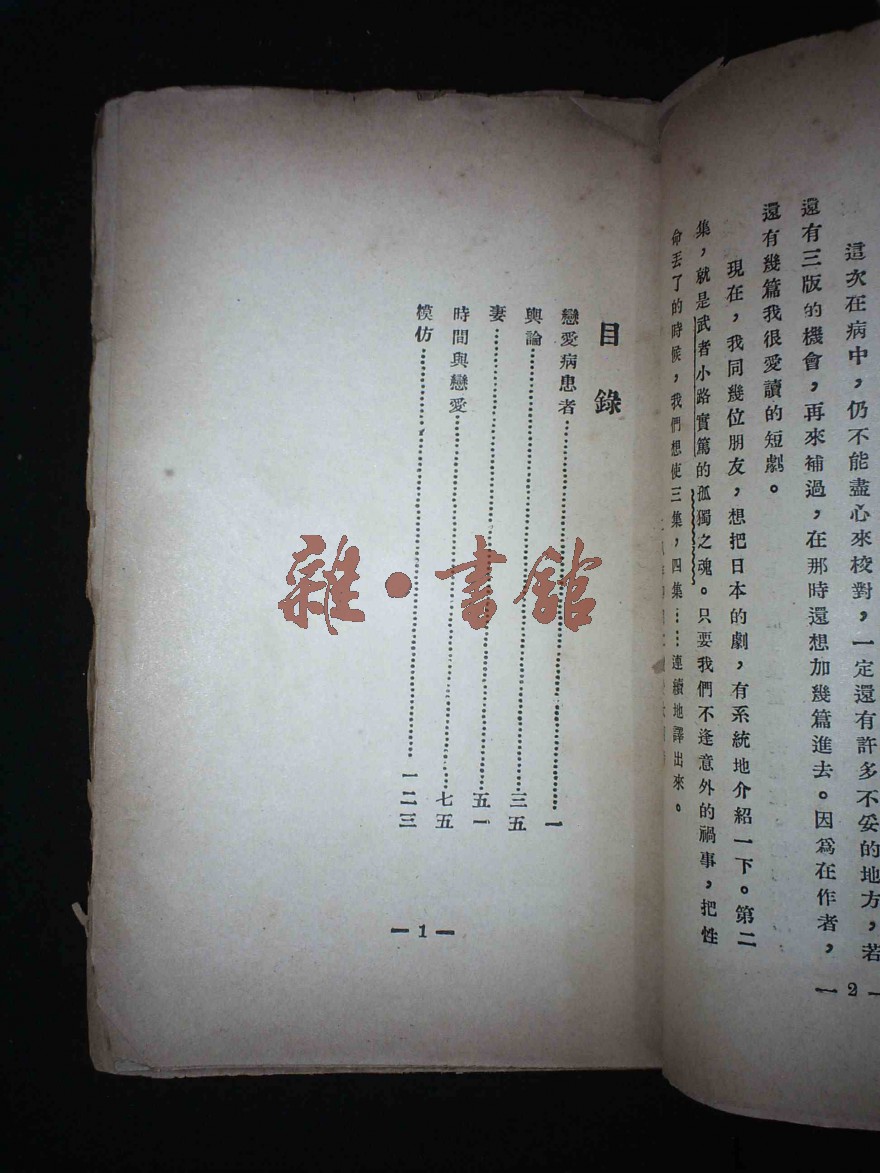 這次在病中，仍不能盡心來校對，一定還有許多不妥的地方，若
還有三版的機會，再來補過，在那時還想加幾篇進去。因爲在作者，
還有幾篇我很愛讀的短劇。
現在，我同幾位朋友，想把日本的劇，有系統地介紹一下。第二
集，就是武者小路實篤的孤獨之魂。只要我們不逢意外的禍事，把性
命丟了的時候，我們想使三集，四集……連續地譯出來。
— 2 —
目錄
戀愛病患者……一
輿論……三五
妻……五一
時間與戀愛……七五
模仿……一二三
— 1 —
雜·書館